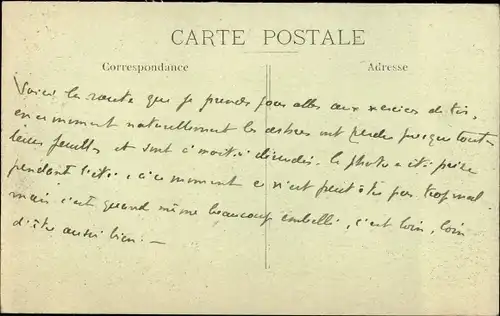 CARTE POSTALE
Correspondance
Adresse
Voici la route que je prends pour aller aux exercices de tir,
en ce moment naturellement les arbres ont perdu presque toutes
leurs feuilles et sont à moitié dénudés. la photo a été prise
pendant l'été, à ce moment ce n'est peut être pas trop mal
mais c'est quand même beaucoup embelli, c'est loin, loin
d'être aussi bien. —